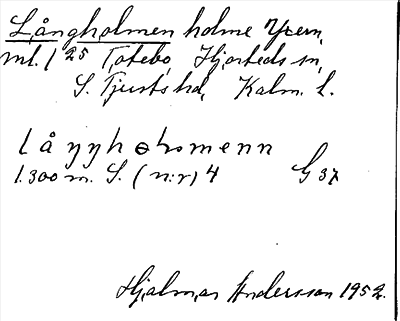 Långholmen holme Yxern,
ml. / 25 Totebo, Hjorteds sn,
S. Tjusts hd, Kalm. l.
låŋŋhɵlmenn
1.300 m. S. (n:r) 4 G 37
Hjalmar Andersson 1952.